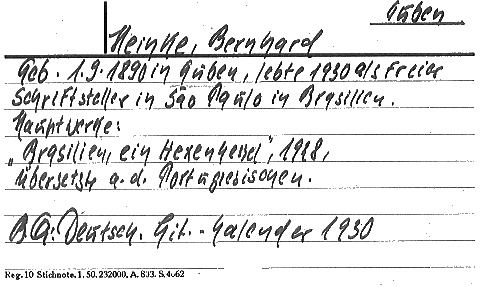 Guben
Heinke, Bernhard
Geb. 1.9.1890 in Guben, lebte 1930 als freier
Schriftsteller in São Paulo in Brasilien.
Hauptwerke:
„Brasilien, ein Hexenherd", 1918,
übersetzt a.d. Portugiesischen.
BQ: Deutsch. Lit.-Kalender 1930
Reg. 10 Stichnote. 1. 50. 232000, A. 833. S. 4.62